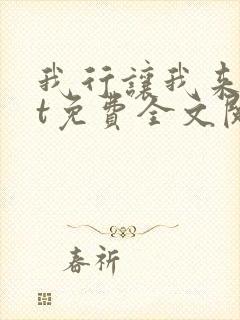 我行讓我来
t免費全文閱
春祈